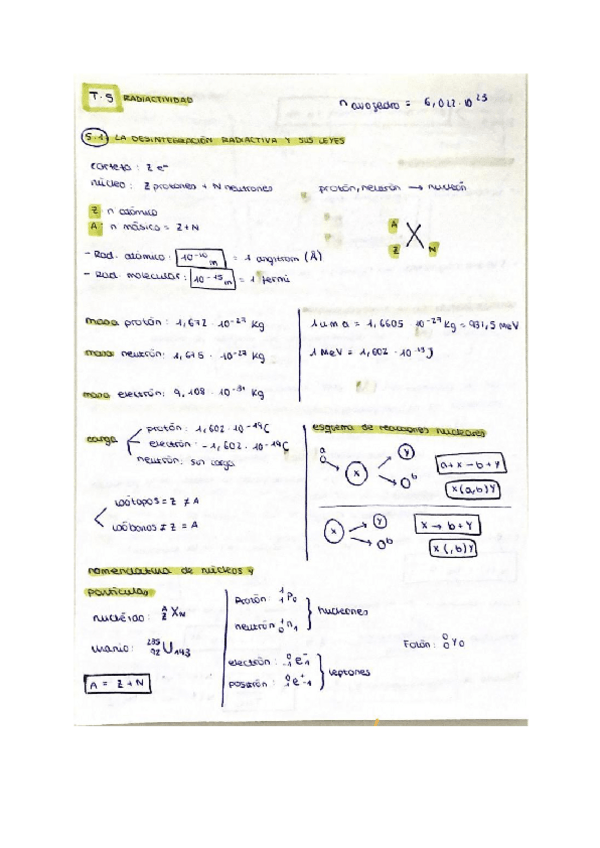 T.5 RADIACTIVIDAD
n avogadro = 6,022·10²³
5.1. LA DESINTEGRACIÓN RADIACTIVA Y SUS LEYES
corteza: Z e⁻
núcleo: Z protones + N neutrones
protón, neutrón → nucleón
Z n atómico
A n másico = Z+N
A
Z X N
- Rad. atómico: 10⁻¹⁰ m = 1 angstrom (Å)
- Rad. molecular: 10⁻¹⁵ m = 1 fermi
masa protón: 1,672 · 10⁻²⁷ kg
masa neutrón: 1,675 · 10⁻²⁷ kg
masa electrón: 9,108 · 10⁻³¹ kg
1 uma = 1,6605 10⁻²⁷ kg = 931,5 MeV
1 MeV = 1,602 · 10⁻¹³ J
carga
protón: 1,602·10⁻¹⁹C
electrón: -1,602·10⁻¹⁹C
neutrón: sin carga
isótopos = Z ≠ A
isóbaros ≠ Z = A
esquema de reacciones nucleares
a
x
y
b
a+x → b+y
x(a,b)y
x
y
b
x → b+y
x(,b)y
nomenclatura de núcleos y
partículas
nucléido: ᴬ_Z X_N
uranio: ²³⁵₉₂U₁₄₃
A = Z+N
Protón: ¹₁P₀
neutrón: ¹₀n₁
nucleones
electrón: ⁰₋₁e⁻₁
positrón: ⁰₁e⁺₋₁
leptones
Fotón: ⁰₀γ₀